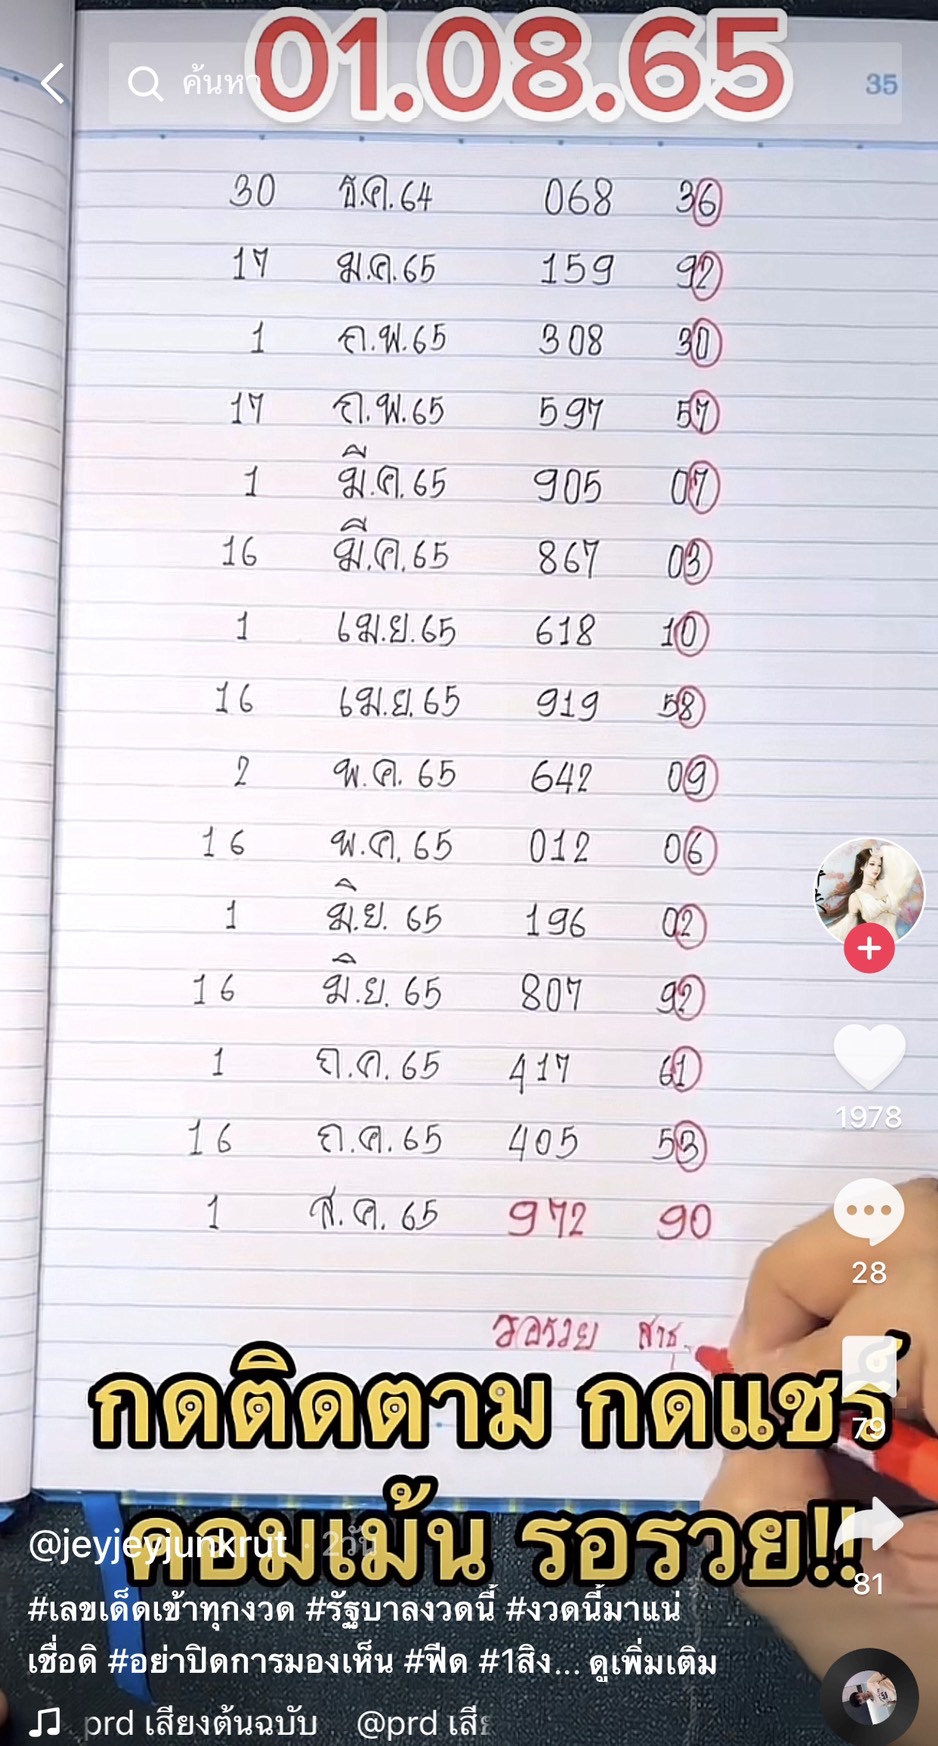 01.08.65
ค้นหา
35
30 ธ.ค.64 068 36
17 ม.ค.65 159 92
1 ก.พ.65 308 30
17 ก.พ.65 597 57
1 มี.ค.65 905 07
16 มี.ค.65 867 03
1 เม.ย.65 618 10
16 เม.ย.65 919 58
2 พ.ค. 65 642 09
16 พ.ค. 65 012 06
1 มิ.ย. 65 196 02
16 มิ.ย. 65 807 92
1 ก.ค. 65 417 61
16 ก.ค.65 405 53
1 ส.ค. 65 972 90
1978
28
รอรวย สาธุ
กดติดตาม กดแชร์
79
คอมเม้น รอรวย!!
@jeyjeyjunkrut · 2วัน
81
#เลขเด็ดเข้าทุกงวด #รัฐบาลงวดนี้ #งวดนี้มาแน่
เชื่อดิ #อย่าปิดการมองเห็น #ฟีด #1สิง... ดูเพิ่มเติม
prd เสียงต้นฉบับ @prd เสี